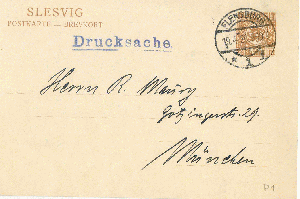 SLESVIG
POSTKARTE — BREVKORT
Drucksache
FLENSBURG
Herrn R. Maury
Götzingerstr. 29.
München
P1